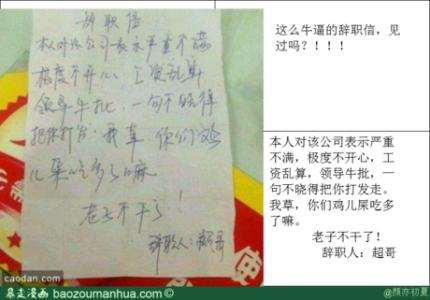 辞职信
本人对该公司表示严重不满
极度不开心，工资乱算
领导牛批，一句不晓得
把你打发，我草，你们鸡
儿屎吃多了嘛
老子不干了！
辞职人：超哥
这么牛逼的辞职信，见
过吗？！！！
本人对该公司表示严重
不满，极度不开心，工
资乱算，领导牛批，一
句不晓得把你打发走。
我草，你们鸡儿屎吃多
了嘛。
老子不干了！
辞职人：超哥
caodan.com
暴走漫画 baozoumanhua.com
@颜亦初夏